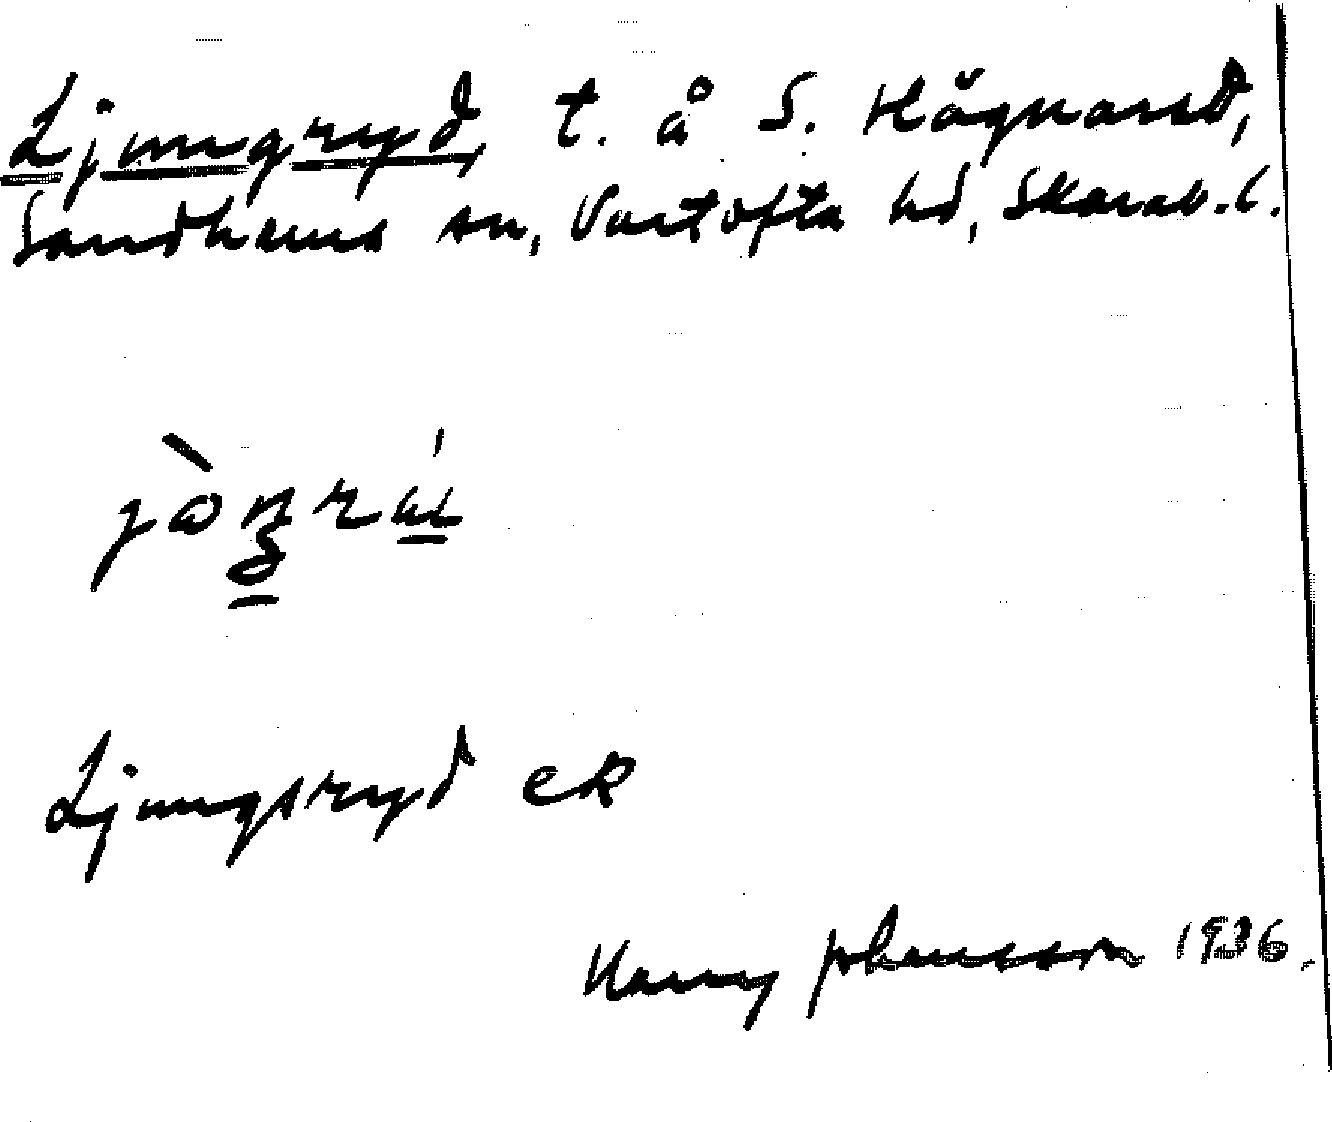 Ljungryd, t. å S. Hägnared,
Sandhems sn, Vartofta hd, Skarab. l.
Ljungsryd ek
Harry Johansson 1936.